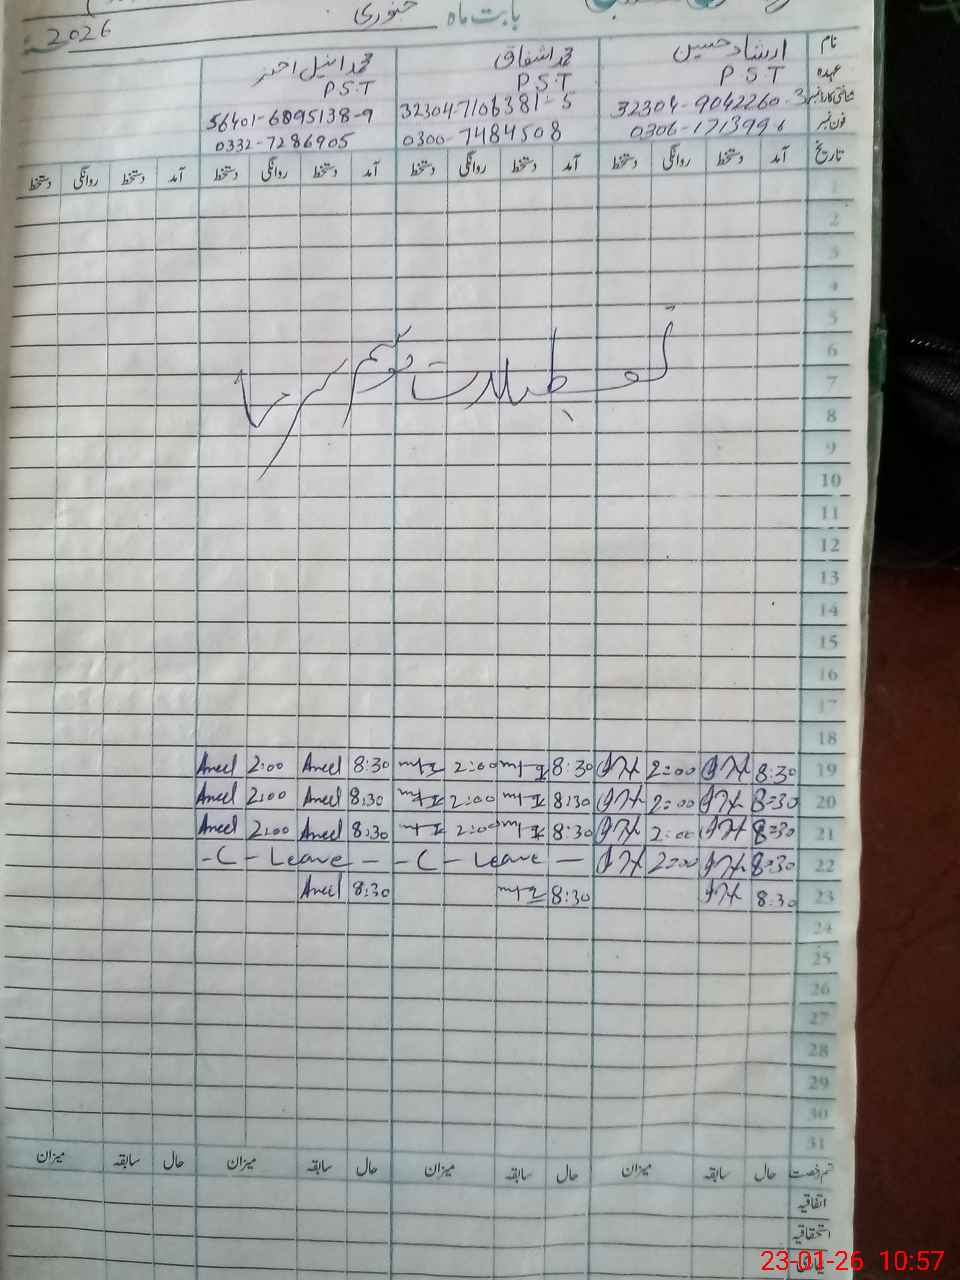 بابت ماہ جنوری 2026
نام ارشاد حسین محمد اشفاق محمد انیل احمز
عہدہ P S T P S.T P S.T
شناختی کارڈ نمبر 32304-9042260-3 32304-7106381-5 36401-6895138-9
فون نمبر 0306-1713996 0300-7484508 0332-7286905
تاریخ آمد دستخط روانگی دستخط آمد دستخط روانگی دستخط آمد دستخط روانگی دستخط آمد دستخط روانگی دستخط
1
2
3
4
5
6
تعطیلات موسم سرما
7
8
9
10
11
12
13
14
15
16
17
18
19 8:30 2:00 8:30 2:00 8:30 Aneel 2:00 Aneel
20 8:30 2:00 8:30 2:00 8:30 Aneel 2:00 Aneel
21 8:30 2:00 8:30 2:00 8:30 Aneel 2:00 Aneel
22 8:30 2:00 - C - Leave - - C - Leave -
23 8:30 8:30 8:30 Aneel
24
25
26
27
28
29
30
31
قسم رخصت حال سابقہ میزان حال سابقہ میزان حال سابقہ میزان حال سابقہ میزان
اتفاقیہ
استحقاقیہ
23-01-26 10:57